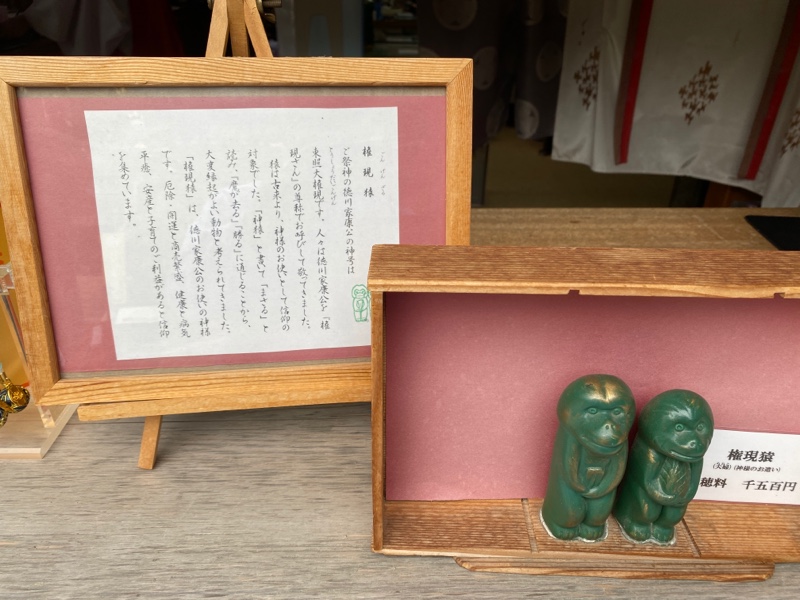 ごん げん ざる
権現猿
ご祭神の徳川家康公の神号は
とうしょうだいごんげん
東照大権現です。人々は徳川家康公を『権
現さん』の尊称でお呼びして敬ってきました。
猿は古来より、神様のお使いとして信仰の
対象でした。「神猿」と書いて「まさる」と
読み、「魔が去る」「勝る」に通じることから、
大変縁起がよい動物と考えられてきました。
『権現猿』は、徳川家康公のお使いの神猿
です。厄除・開運と商売繁盛、健康と病気
平癒、安産と子育てのご利益があると信仰
を集めています。
権現猿
(夫婦) (神様のお遣い)
穂料 千五百円